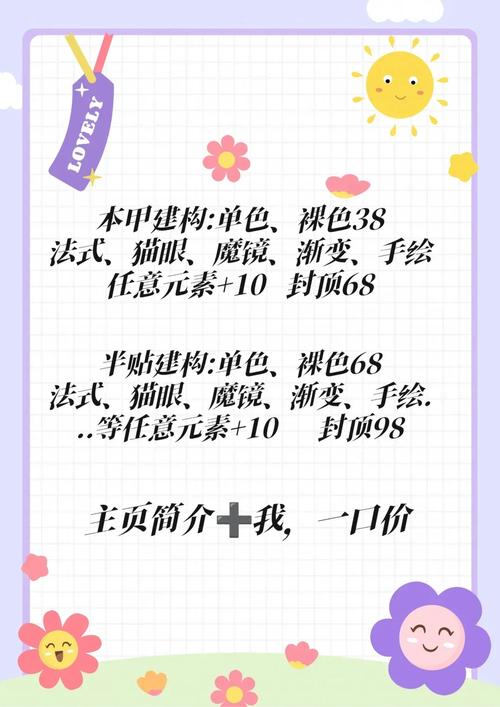 LOVELY
本甲建构:单色、裸色38
法式、猫眼、魔镜、渐变、手绘
任意元素+10 封顶68
半贴建构:单色、裸色68
法式、猫眼、魔镜、渐变、手绘.
..等任意元素+10 封顶98
主页简介➕我,一口价